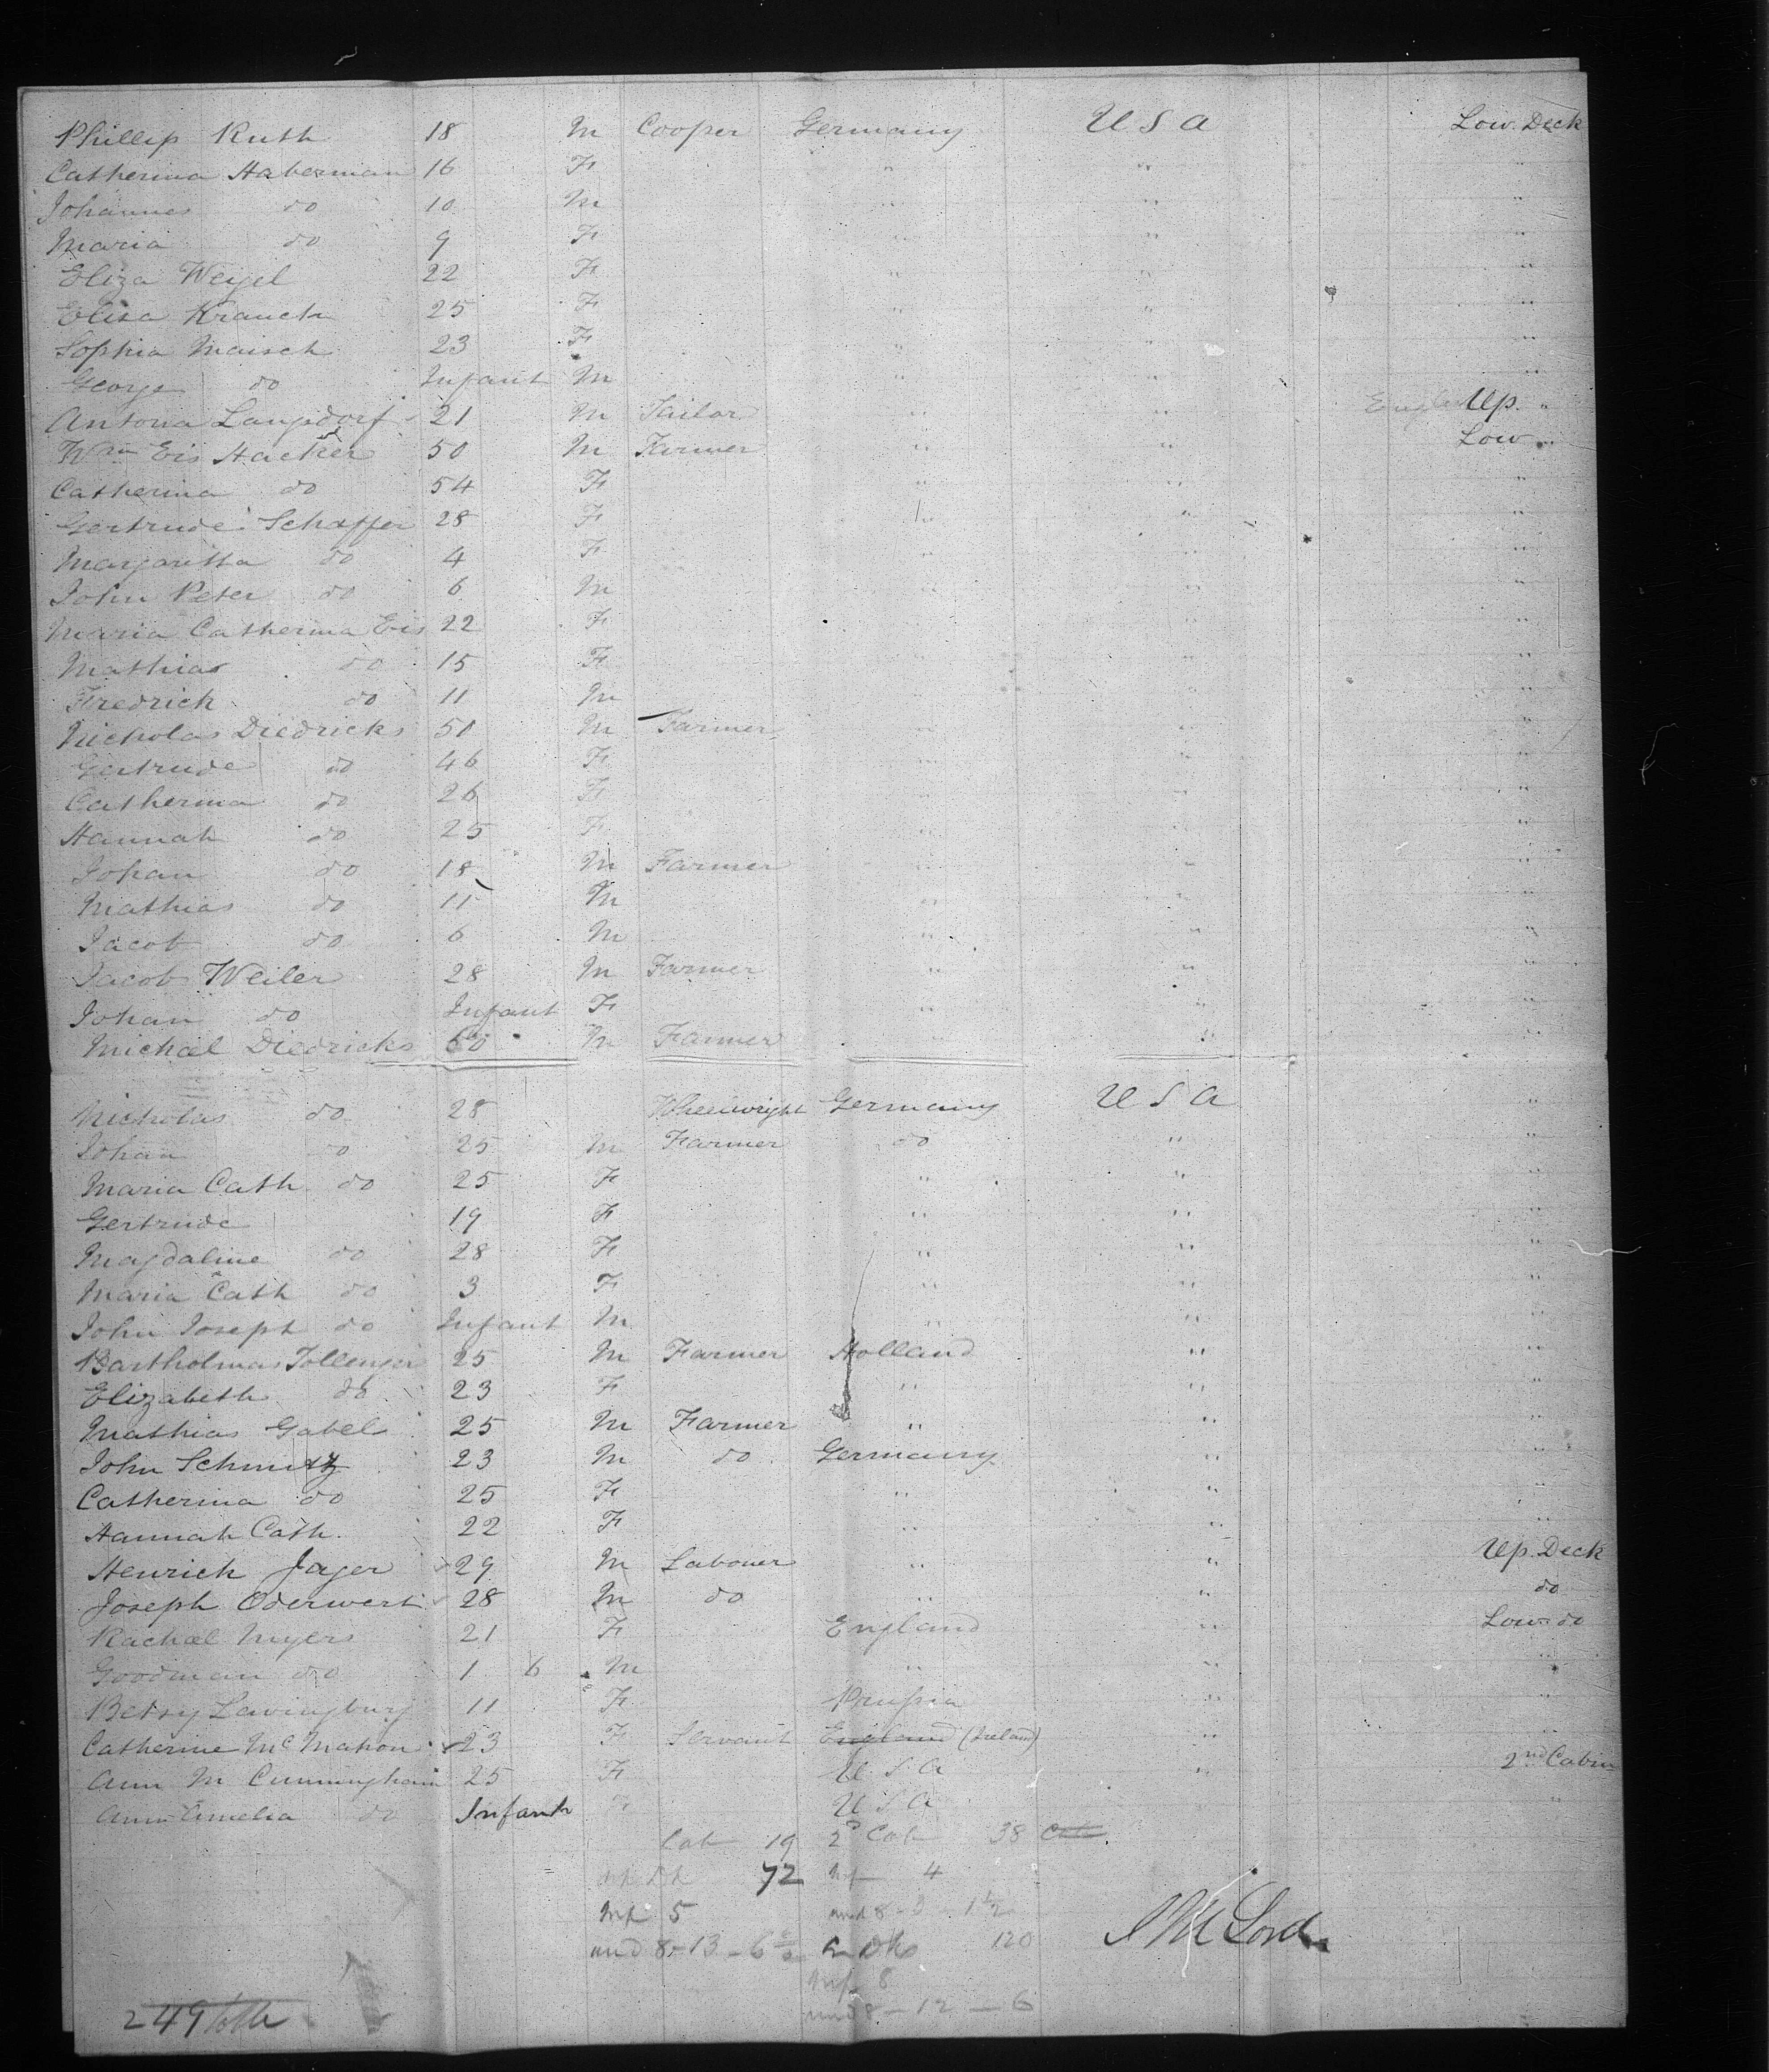 Phillip Ruth 18 M Cooper Germany U S A Low. Deck
Catherina Haberman 16 F " " "
Johannes do 10 M " " "
Maria do 9 F " " "
Eliza Weyel 22 F " " "
Elisa Krauch 25 F " " "
Sophia Maisch 23 F " " "
George do Infant M " " "
Antona Langsdorf 21 M Tailor " " Up. "
Wm Eis Hacker 50 M Farmer " " Low "
Catherina do 54 F " " "
Gertrude Schaffer 28 F " " "
Margaretta do 4 F " " "
John Peter do 6 M " " "
Maria Catherina Eis 22 F " " "
Mathias do 15 F " " "
Fredrick do 11 M " " "
Nicholas Diedricks 50 M Farmer " " "
Gertrude do 46 F " " "
Catherina do 26 F " " "
Hannah do 25 F " " "
Johan do 18 M Farmer " " "
Mathias do 11 M " " "
Jacob do 6 M " " "
Jacob Weiler 28 M Farmer " " "
Johan do Infant F " " "
Michael Diedricks 60 M Farmer " " "
Nicholas do 28 Wheelwright Germany U S A "
Johan do 25 M Farmer do " "
Maria Cath do 25 F " " "
Gertrude 19 F " " "
Magdaline do 28 F " " "
Maria Cath do 3 F " " "
John Joseph do Infant M " " "
Bartholmas Tollenger 25 M Farmer Holland " "
Elizabeth do 23 F " " "
Mathias Gabel 25 M Farmer " " "
John Schmitz 23 M do Germany " "
Catherina do 25 F " " "
Hannah Cath. 22 F " " "
Henrich Jager 29 M Labouer " " Up. Deck
Joseph Oderwert 28 M do " " do
Rachael Myers 21 F England " Low do
Goodman do 1 6 M " " "
Betsy Lewingburg 11 F Prussia " "
Catherine Mc Mahon 23 F Servant England (Ireland) " "
Ann M Cunningham 25 F U S A " 2nd Cabin
Ann Amelia do Infant F U S A "
Cab 19 2d Cab 38
72 Inf 4
Inf 5 und 8 - 3 1 1/2
und 8 - 13 - 6 1/2 Dks 120
Inf 8
und 8 - 12 - 6
249